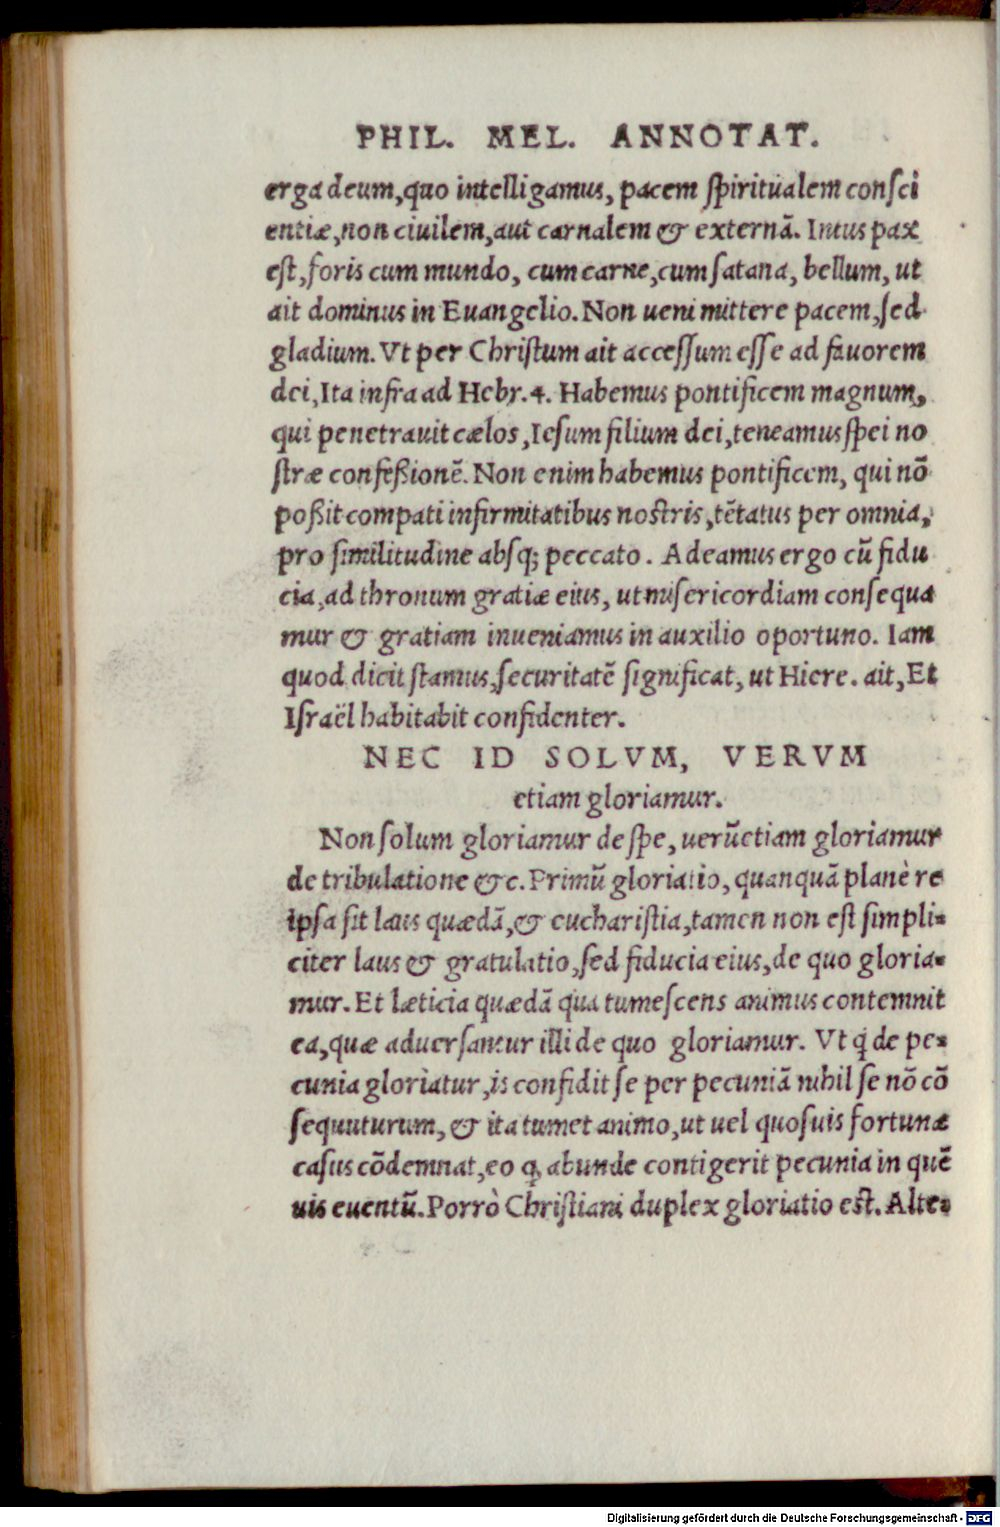 PHIL. MEL. ANNOTAT.
erga deum, quo intelligamus, pacem ſpiritualem conſci
entiæ, non ciuilem, aut carnalem & externā. Intus pax
eſt, foris cum mundo, cum carne, cum ſatana, bellum, ut
ait dominus in Euangelio. Non ueni mittere pacem, ſed
gladium. Vt per Chriſtum ait acceſſum eſſe ad fauorem
dei, Ita infra ad Hebr. 4. Habemus pontificem magnum,
qui penetrauit cælos, Ieſum filium dei, teneamus ſpei no
ſtræ confeßionē. Non enim habemus pontificem, qui nō
poßit compati infirmitatibus noſtris, tētatus per omnia,
pro ſimilitudine abſq; peccato. Adeamus ergo cū fidu
cia, ad thronum gratiæ eius, ut miſericordiam conſequa
mur & gratiam inueniamus in auxilio oportuno. Iam
quod dicit ſtamus, ſecuritatē ſignificat, ut Hiere. ait, Et
Iſraël habitabit confidenter.
NEC ID SOLVM, VERVM
etiam gloriamur.
Non ſolum gloriamur de ſpe, uerūetiam gloriamur
de tribulatione &c. Primū gloriatio, quanquā planè re
ipſa ſit laus quædā, & euchariſtia, tamen non eſt ſimpli-
citer laus & gratulatio, ſed fiducia eius, de quo gloria-
mur. Et læticia quædā qua tumeſcens animus contemnit
ea, quæ aduerſantur illi de quo gloriamur. Vt q̃ de pe-
cunia gloriatur, is confidit ſe per pecuniā nihil ſe nō cō
ſequuturum, & ita tumet animo, ut uel quoſuis fortunæ
caſus cōdemnat, eo q̃ abunde contigerit pecunia in quē
uis euentū. Porrò Chriſtiani duplex gloriatio eſt. Alte-
Digitalisierung gefördert durch die Deutsche Forschungsgemeinschaft - DFG